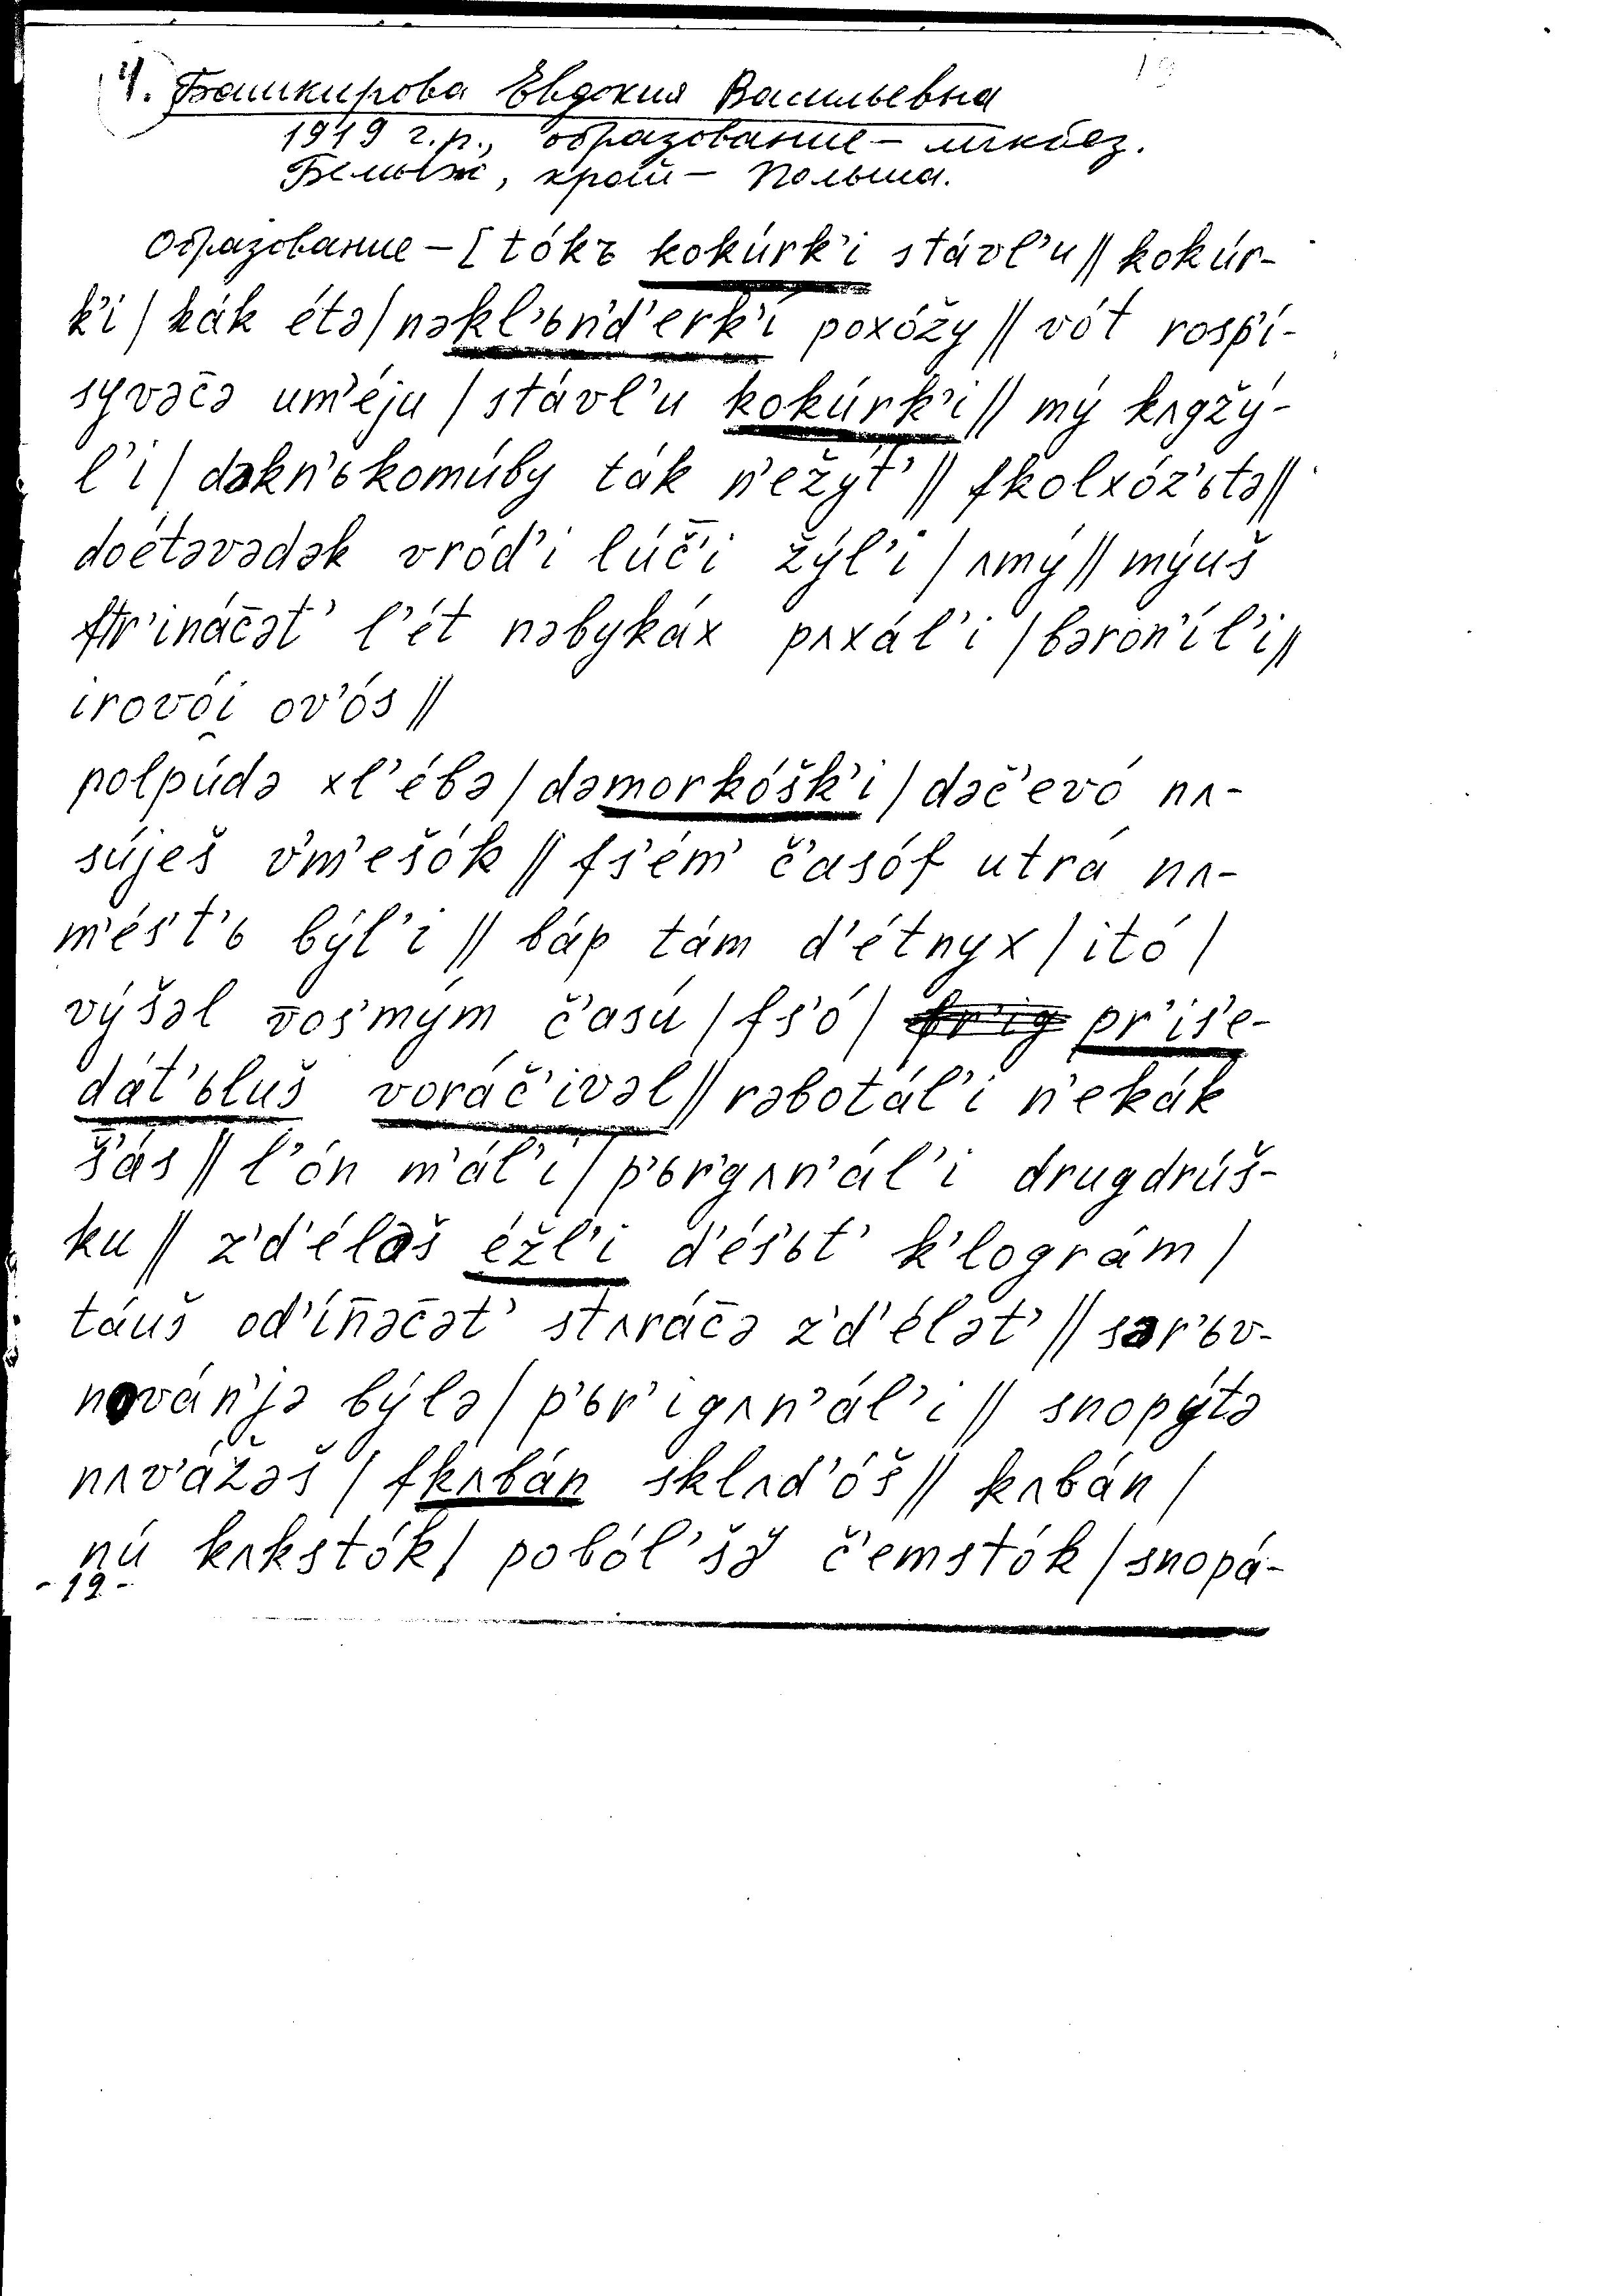 4. Башкирова Евдокия Васильевна
1919 г.р., образование – ликбез.
Белыж, край – Польша.
Образование – [tókъ kokúrk’i stávl’u // kokúr-
k’i / kák étə / nəkl’ьn’d’erk’í poxóžy // vót rosp’í-
syvəc̄ə um’éju / stávl’u kokúrk’i // mý kʌgžý-
l’i / dəkn’ькomúby ták n’ežýt’ // fkolxóz’ьtə //
doétəvədək vród’i lúč̄’i žýl’i / ʌmý // mýuš
ftr’inác̄ət’ l’ét nəbykáx pʌxál’i / bəron’íl’i //
irovói̯ ov’ós //
polpúdə xl’ébə / dəmorkóšk’i / dəč’evó nʌ-
súješ v̄’m’ešók // fs’ém’ č’asóf utrá nʌ-
m’és’t’ь býl’i // báp tám d’étnyx / itó /
výšəl v̄os’mým č’asú / fs’ó / f̶r̶’̶i̶g̶ pr’is’e-
dát’ьluš voráč’ivəl // rəbotál’i n’ekák
š̄’ás // l’ón m’ál’i / p’ьr’gʌn’ál’i drugdrúš-
ku // z’d’éləš éžl’i d’és’ьt’ k’lográm /
táuš od’ín̄əc̄ət’ stʌrác̄ə z’d’élət’ // sər’ьv-
nován’jə býlə / p’ьr’igʌn’ál’i // snopýtə
nʌv’ážəš / fkʌbán sklʌd’óš // kʌbán /
nú kʌkstók / poból’šə č’emstók / snopá-
-12-